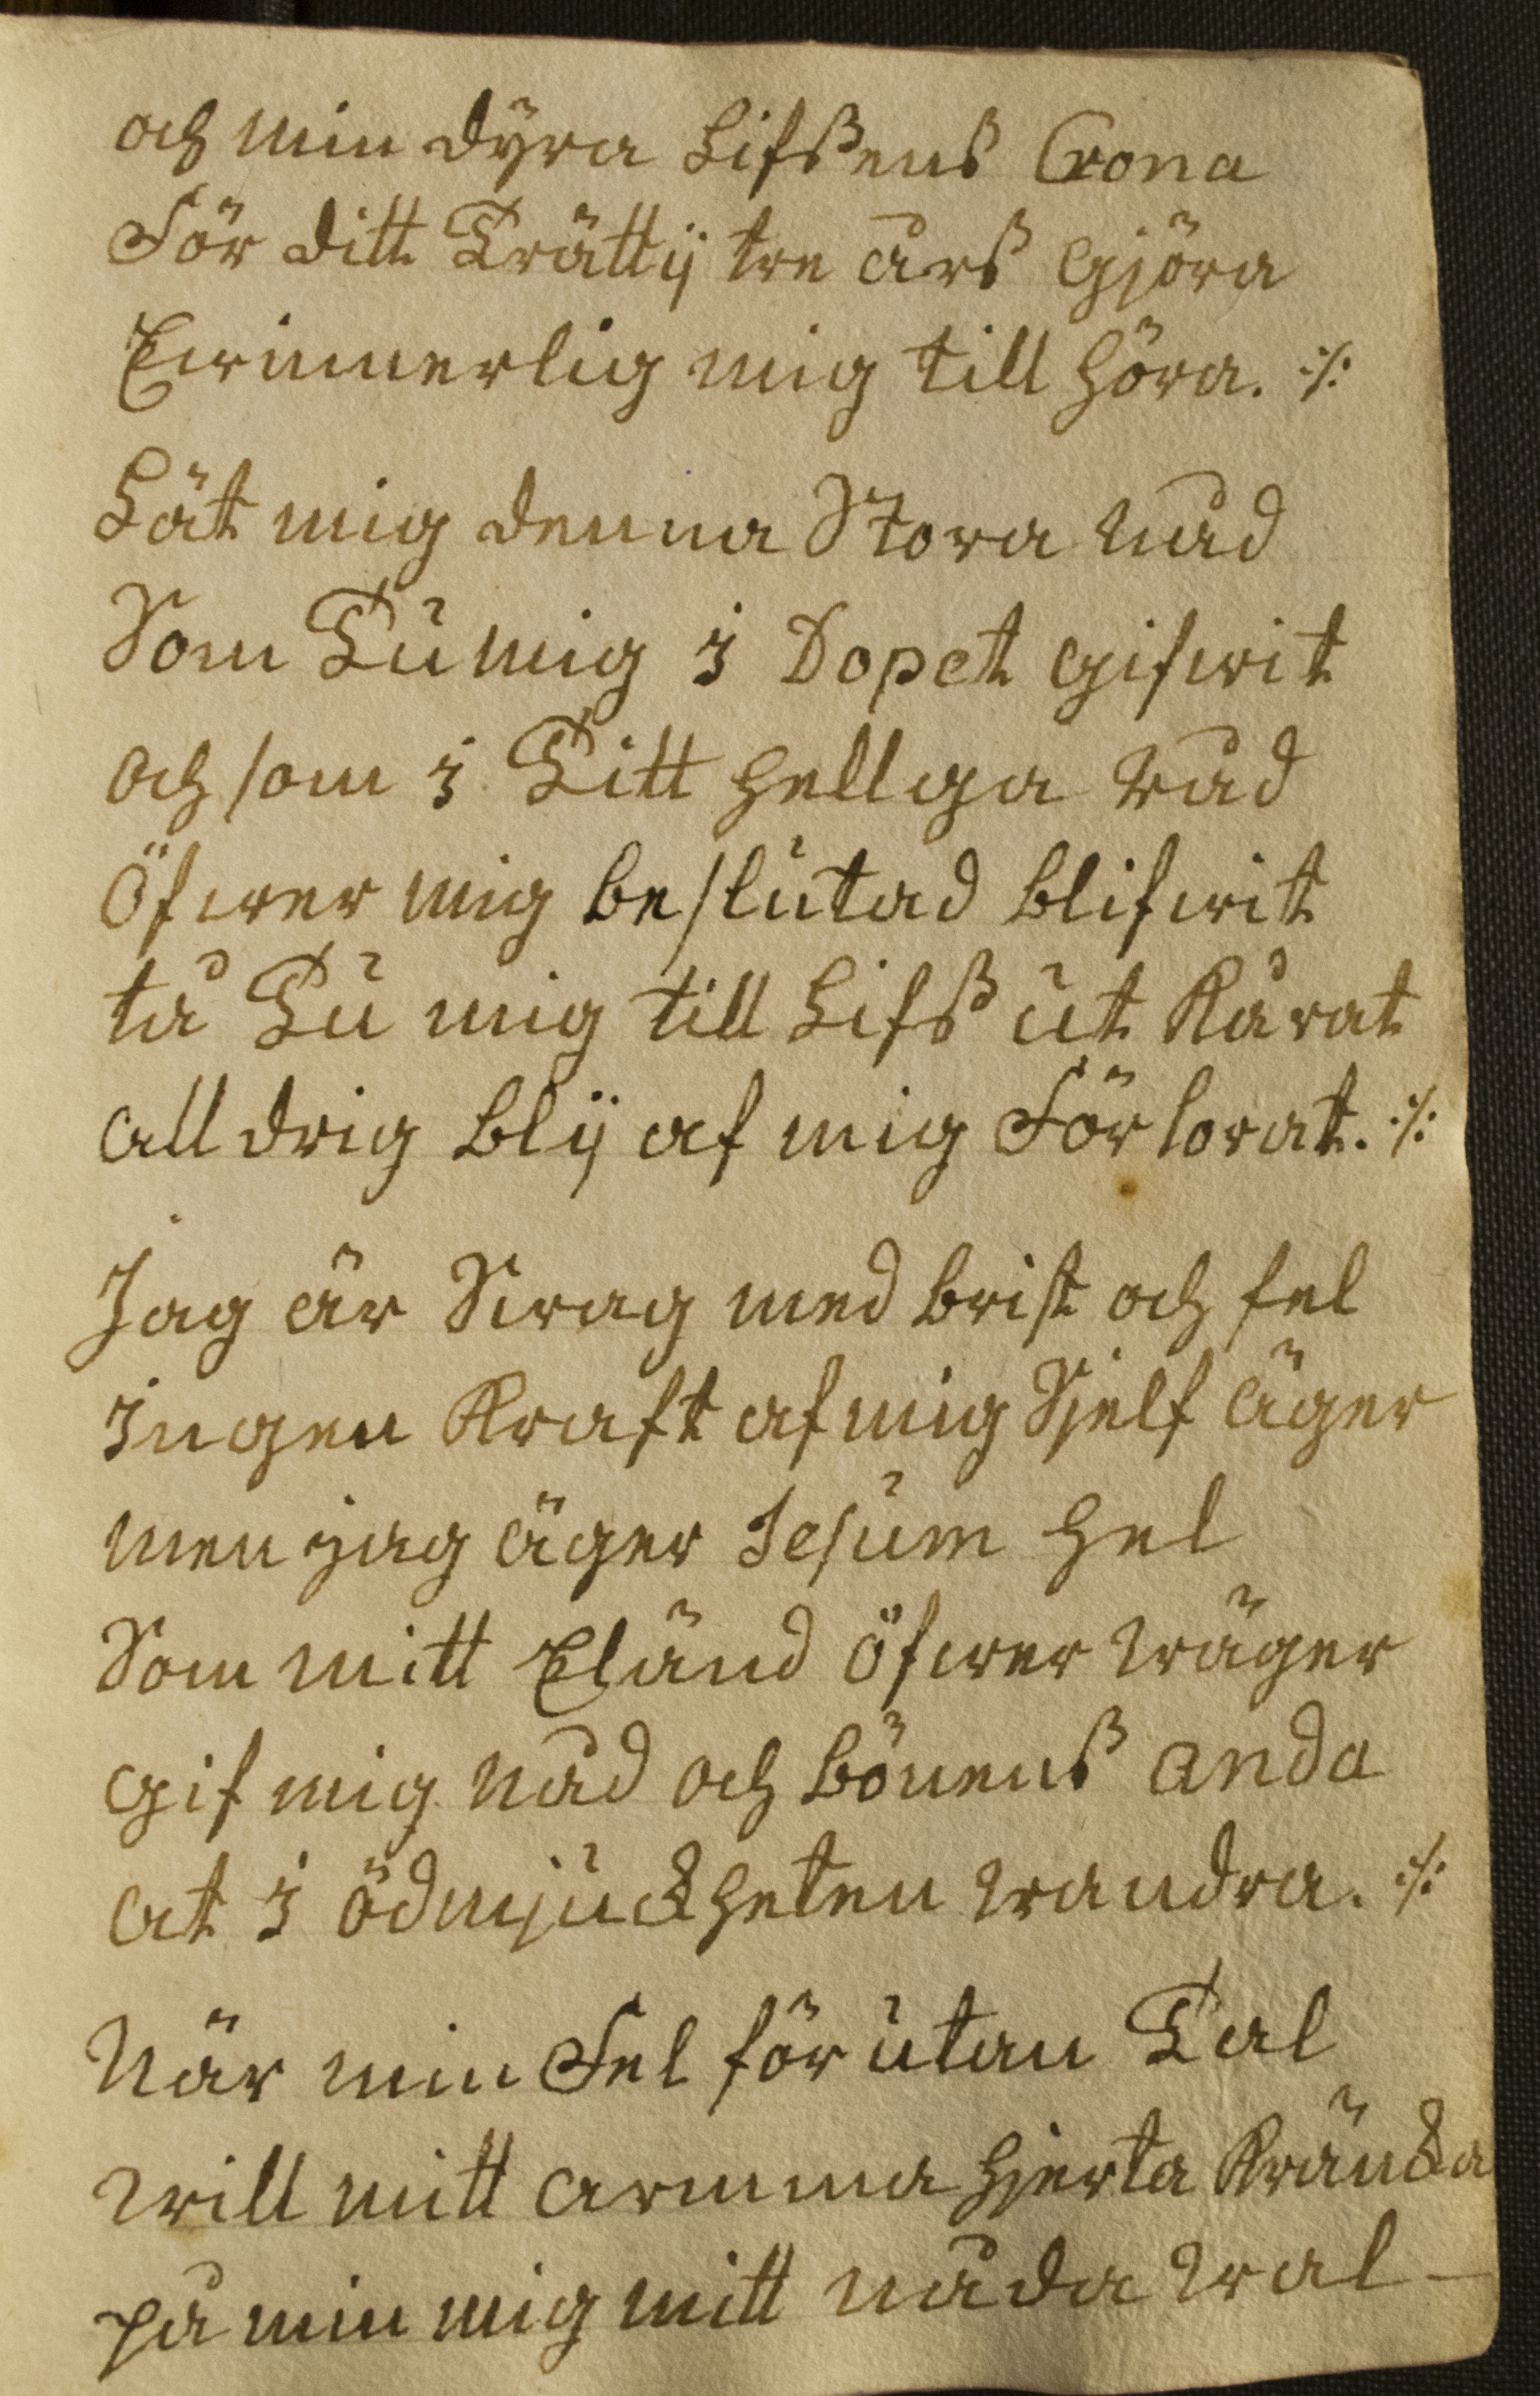 och min dÿra Lifßens Crona
För ditt Trättij tre års gjöra
Ewinnerlig mig till höra. ·/:
Låt mig denna Stora nåd
Som Tu mig i Dopet gifwit
och som i Titt hellga råd
Öfwer mig beslutad blifwit
tå Tu mig till Lifß ut kårat
alldrig blij af mig Förlorat. ·/:
Jag är Swag med brist och fel
ingen kraft af mig Sjelf äger
men jag äger Jesum hel
Som mitt Eländ öfwer wäger
gif mig nåd och bönenß anda
at i ödmjuckheten wandra. ·/:
När min Fel för utan Tal
will mitt armma hjerta kräncka
påmin mig mitt nåda wal –